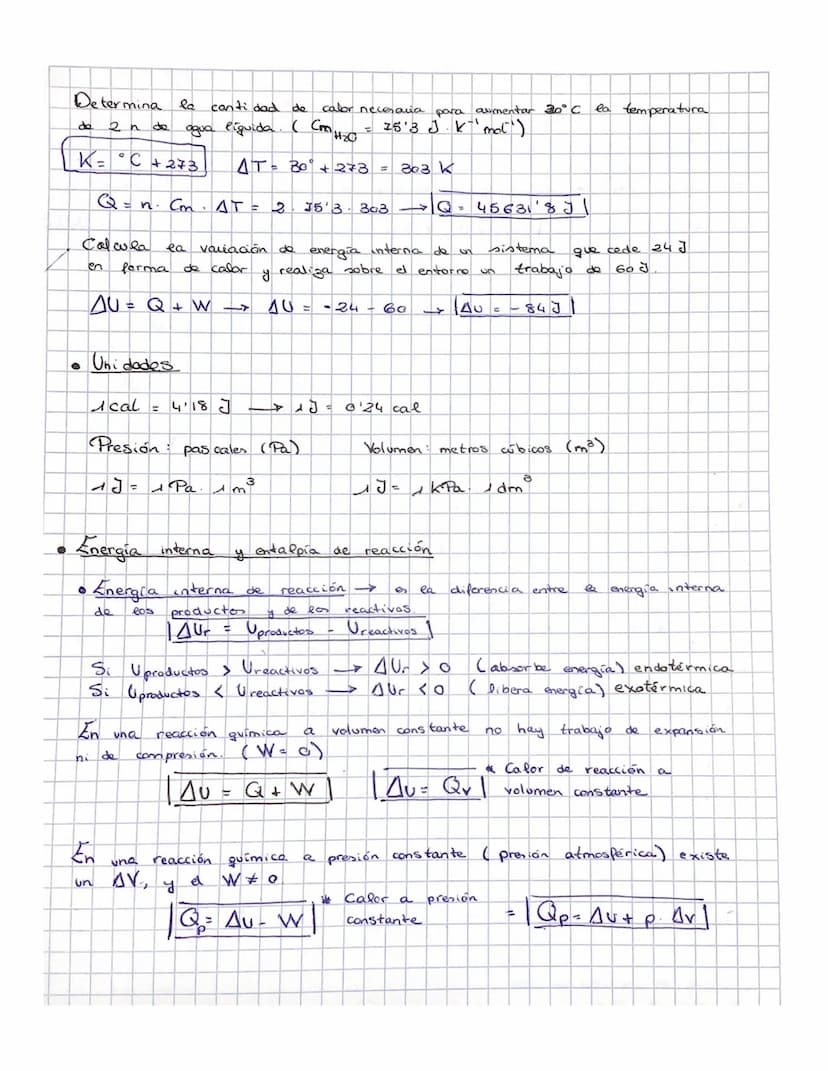 Determina la cantidad de calor necesaria para aumentar 30°C la temperatura
de 2 n de agua líquida. ( Cm H2O = 75'3 J · K⁻¹ mol⁻¹)
K = °C + 273   ΔT = 30° + 273 = 303 K
Q = n · Cm · ΔT = 2 · 75'3 · 303 → Q = 45631'8 J
Calcula la variación de energía interna de un sistema que cede 24 J
en forma de calor y realiza sobre el entorno un trabajo de 60 J.
ΔU = Q + W → ΔU = -24 - 60 → ΔU = -84 J
• Unidades
1 cal = 4'18 J → 1 J = 0'24 cal
Presión: pascales (Pa)   Volumen: metros cúbicos (m³)
1 J = 1 Pa · 1 m³   1 J = 1 kPa · 1 dm³
• Energía interna y entalpía de reacción
• Energía interna de reacción → es la diferencia entre la energía interna
de los productos y de los reactivos
ΔUr = Uproductos - Ureactivos
Si Uproductos > Ureactivos → ΔUr > 0 (absorbe energía) endotérmica
Si Uproductos < Ureactivos → ΔUr < 0 (libera energía) exotérmica
En una reacción química a volumen constante no hay trabajo de expansión
ni de compresión. (W = 0)
ΔU = Q + W   ΔU = Qv   * Calor de reacción a
volumen constante
En una reacción química a presión constante (presión atmosférica) existe
un ΔV, y el W ≠ 0
Qp = ΔU - W   * Calor a presión
constante   = Qp = ΔU + p · ΔV